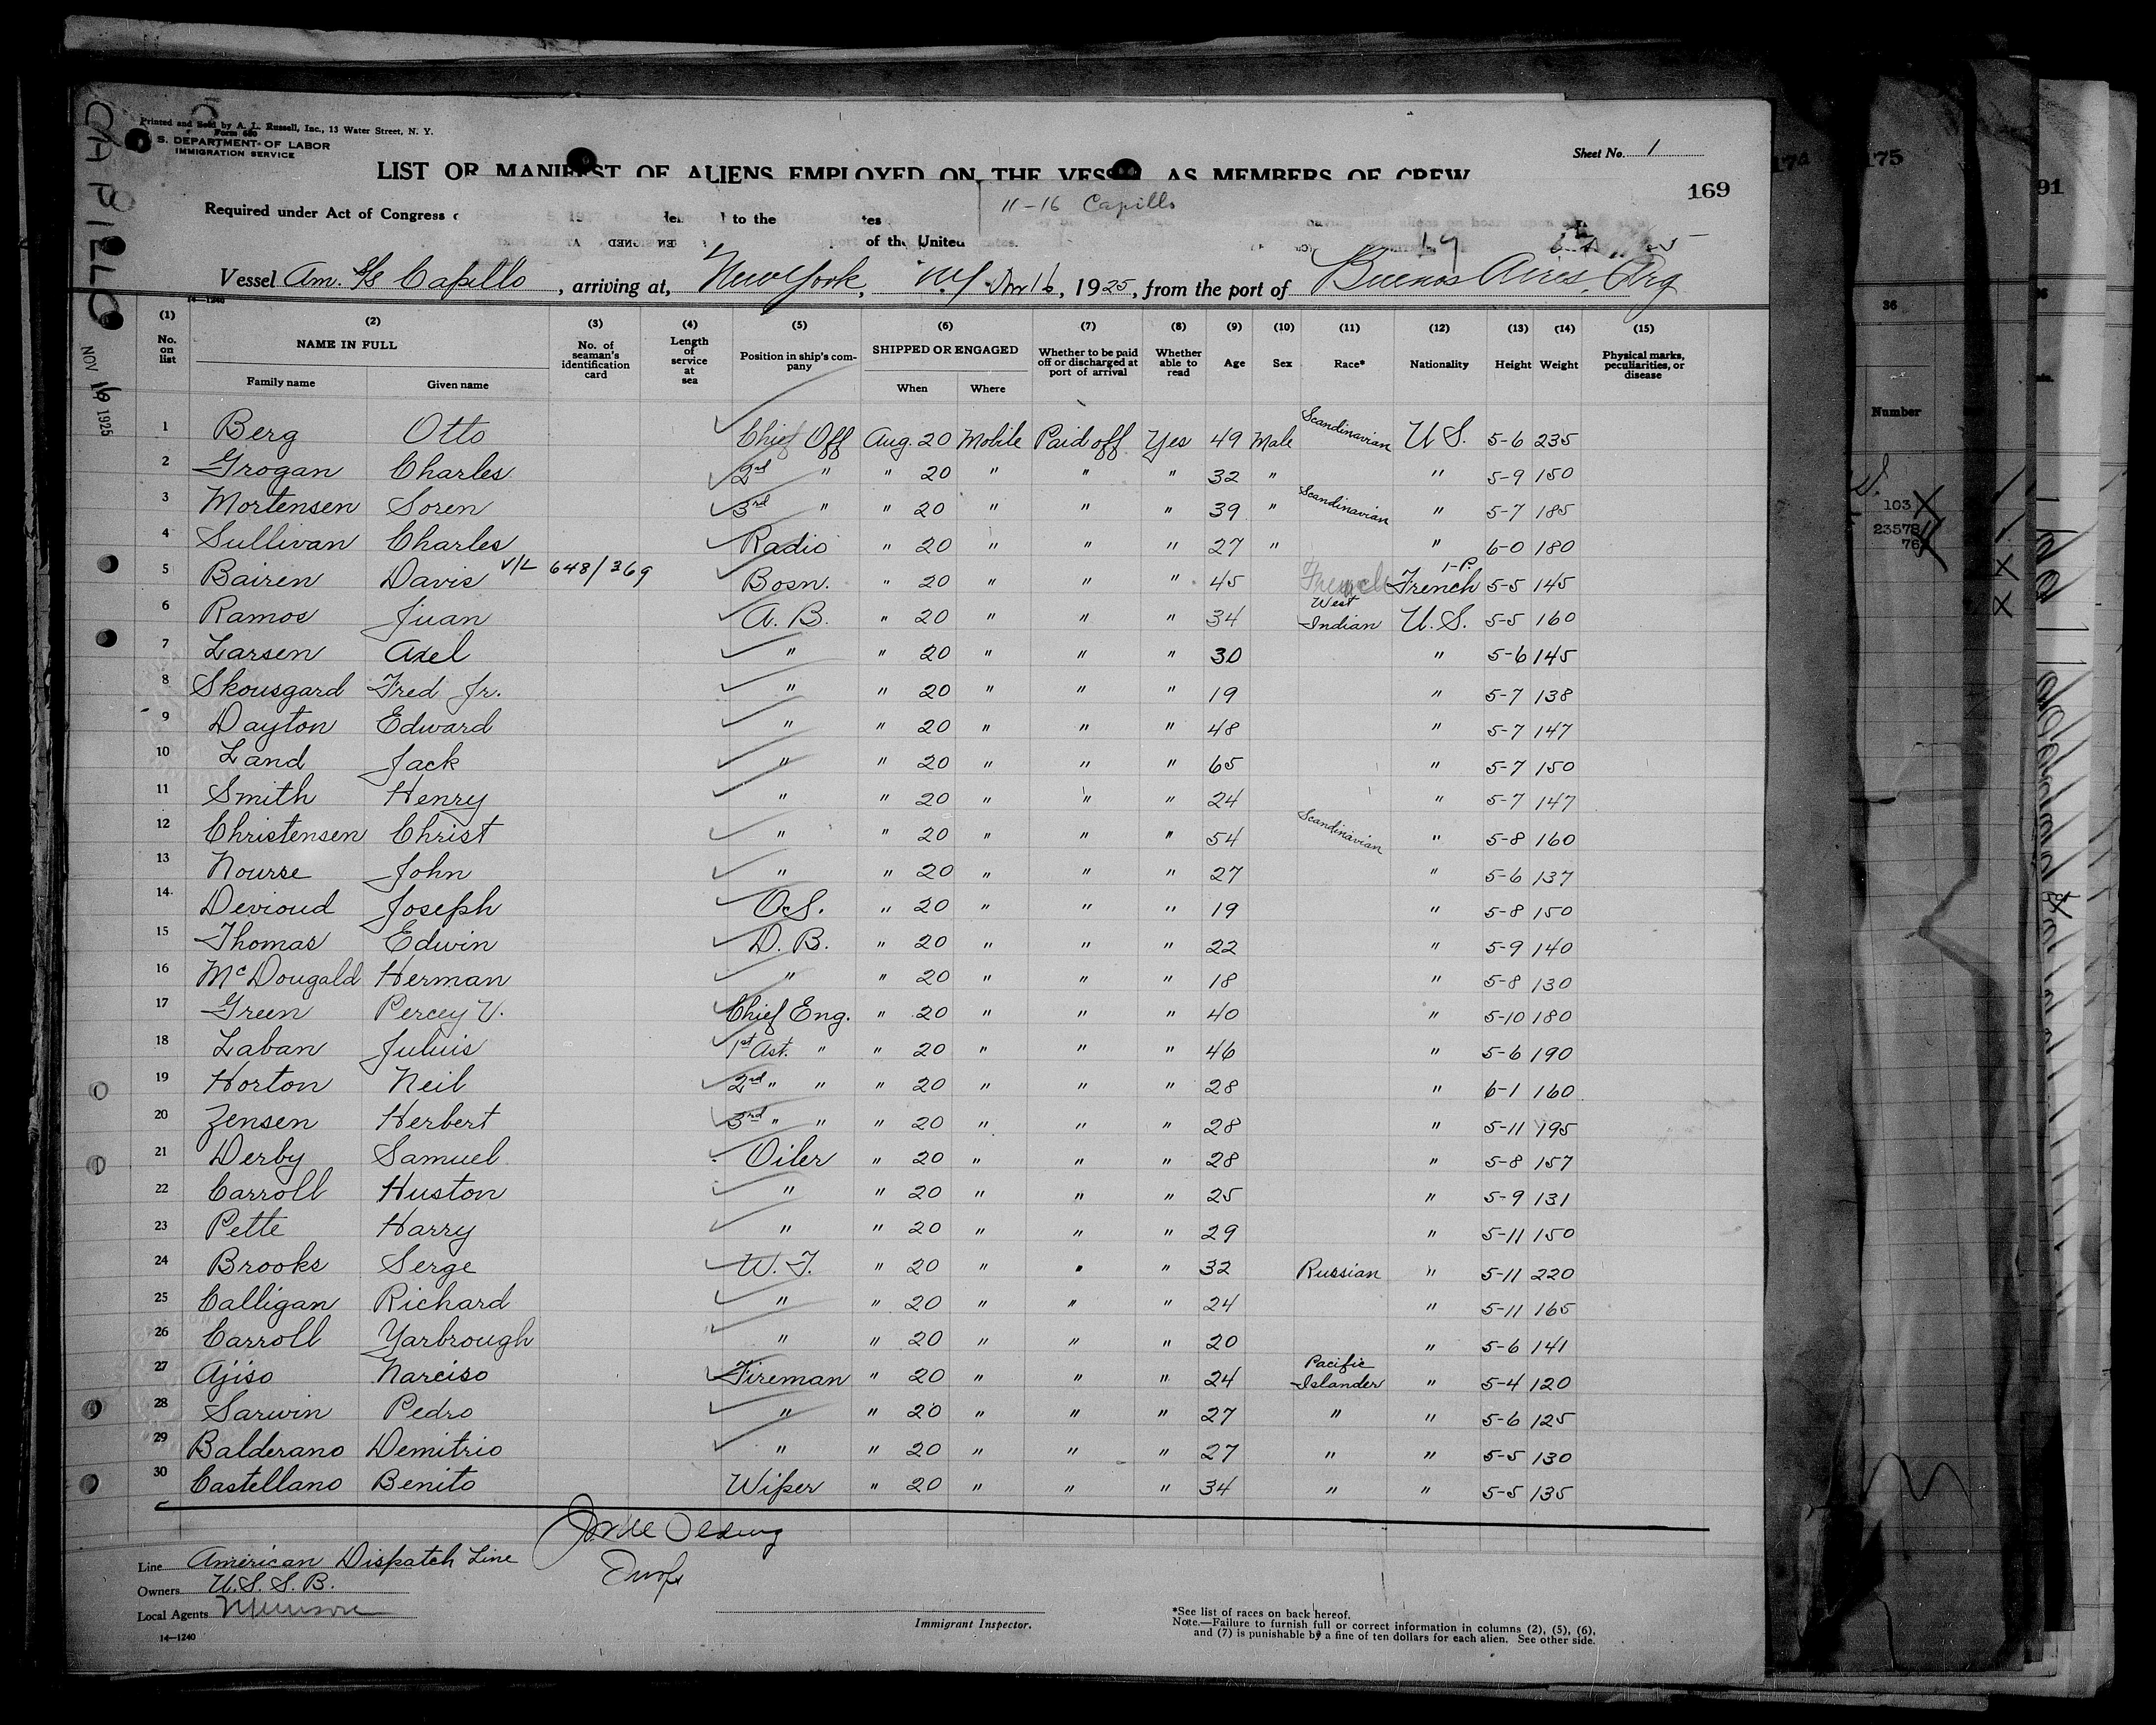 CAPILLO
NOV 16 1925
Printed and Sold by A. L. Russell, Inc., 13 Water Street, N. Y.
Form 680
S. DEPARTMENT OF LABOR
IMMIGRATION SERVICE
Sheet No. 1
LIST OR MANIFEST OF ALIENS EMPLOYED ON THE VESSEL AS MEMBERS OF CREW
169
11-16 Capillo
Required under Act of Congress to the
of the United
Vessel Am. S/S Capillo, arriving at, New York, N.Y. Nov 16, 1925, from the port of Buenos Aires, Arg
14-1240
(1) (2) (3) (4) (5) (6) (7) (8) (9) (10) (11) (12) (13) (14) (15)
No. on list NAME IN FULL Family name Given name No. of seaman's identification card Length of service at sea Position in ship's company SHIPPED OR ENGAGED When Where Whether to be paid off or discharged at port of arrival Whether able to read Age Sex Race* Nationality Height Weight Physical marks, peculiarities, or disease
1 Berg Otto Chief Off Aug. 20 Mobile Paid off Yes 49 Male Scandinavian U S. 5-6 235
2 Grogan Charles 2nd " " 20 " " " 32 " " 5-9 150
3 Mortensen Soren 3rd " " 20 " " " 39 " Scandinavian " 5-7 185
4 Sullivan Charles Radio " 20 " " " 27 " " 6-0 180
5 Bairen Davis V/L 648/369 Bosn. " 20 " " " 45 French French 1-P. 5-5 145
6 Ramos Juan A. B. " 20 " " " 34 West Indian U. S. 5-5 160
7 Larsen Axel " " 20 " " " 30 " 5-6 145
8 Skousgard Fred Jr. " " 20 " " " 19 " 5-7 138
9 Dayton Edward " " 20 " " " 48 " 5-7 147
10 Land Jack " " 20 " " " 65 " 5-7 150
11 Smith Henry " " 20 " " " 24 " 5-7 147
12 Christensen Christ " " 20 " " " 54 Scandinavian " 5-8 160
13 Nourse John " " 20 " " " 27 " 5-6 137
14 Devioud Joseph O.S. " 20 " " " 19 " 5-8 150
15 Thomas Edwin D. B. " 20 " " " 22 " 5-9 140
16 McDougald Herman " " 20 " " " 18 " 5-8 130
17 Green Percey V. Chief Eng. " 20 " " " 40 " 5-10 180
18 Laban Juluis 1st Ast. " " 20 " " " 46 " 5-6 190
19 Horton Neil 2nd " " " 20 " " " 28 " 6-1 160
20 Zensen Herbert 3rd " " " 20 " " " 28 " 5-11 195
21 Derby Samuel Oiler " 20 " " " 28 " 5-8 157
22 Carroll Huston " " 20 " " " 25 " 5-9 131
23 Pette Harry " " 20 " " " 29 " 5-11 150
24 Brooks Serge W. T. " 20 " " " 32 Russian " 5-11 220
25 Calligan Richard " " 20 " " " 24 " 5-11 165
26 Carroll Yarbrough " " 20 " " " 20 " 5-6 141
27 Ajiso Narciso Fireman " 20 " " " 24 Pacific Islander " 5-4 120
28 Sarwin Pedro " " 20 " " " 27 " " 5-6 125
29 Balderano Demitrio " " 20 " " " 27 " " 5-5 130
30 Castellano Benito Wiper " 20 " " " 34 " " 5-5 135
Line American Dispatch Line
Owners U.S.S.B.
Local Agents Munson
Immigrant Inspector.
14-1240
*See list of races on back hereof.
Note.—Failure to furnish full or correct information in columns (2), (5), (6),
and (7) is punishable by a fine of ten dollars for each alien. See other side.
174
175
91
36
Number
103
23578
76